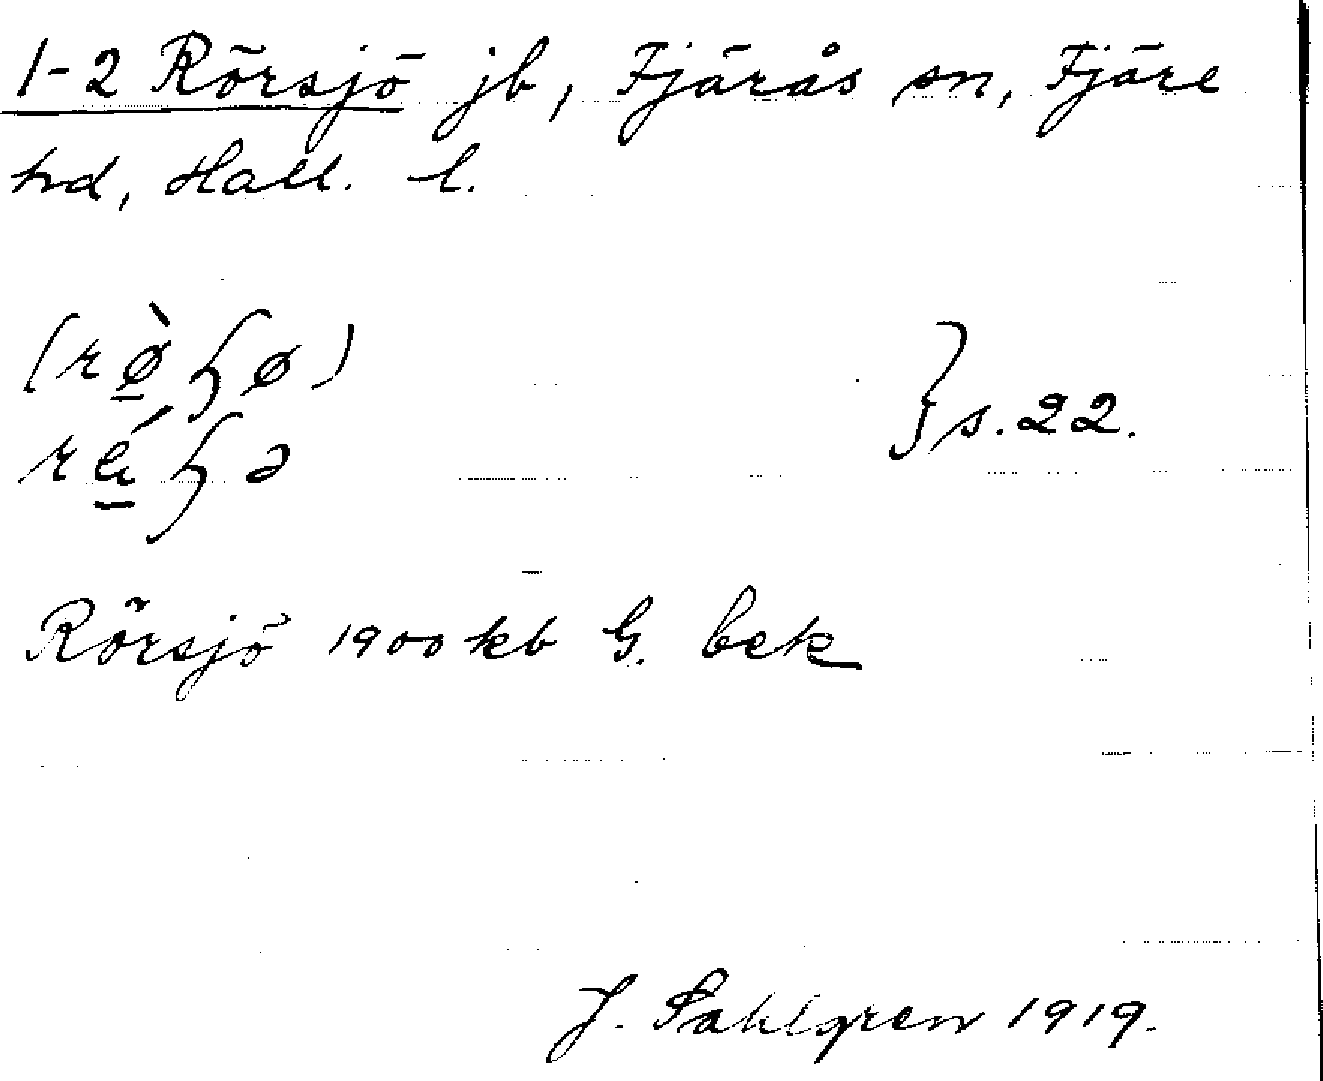 1-2 Rörsjö jb, Fjärås sn, Fjäre
hd, Hall. l.
(rø̠̀ɧø)
} s. 22.
Rörsjö 1900 kb G. bek
J. Sahlgren 1919.